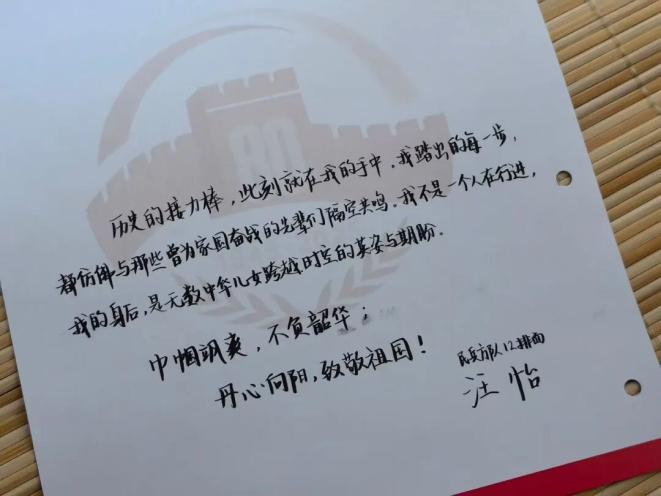 历史的接力棒，此刻就在我的手中。我踏出的每一步，
都仿佛与那些曾为家国奋战的先辈们隔空共鸣。我不是一个人在行进，
我的身后，是无数中华儿女跨越时空的英姿与期盼。
巾帼飒爽，不负韶华；
丹心向阳，致敬祖国！
民兵方队12排面
汪怡
80